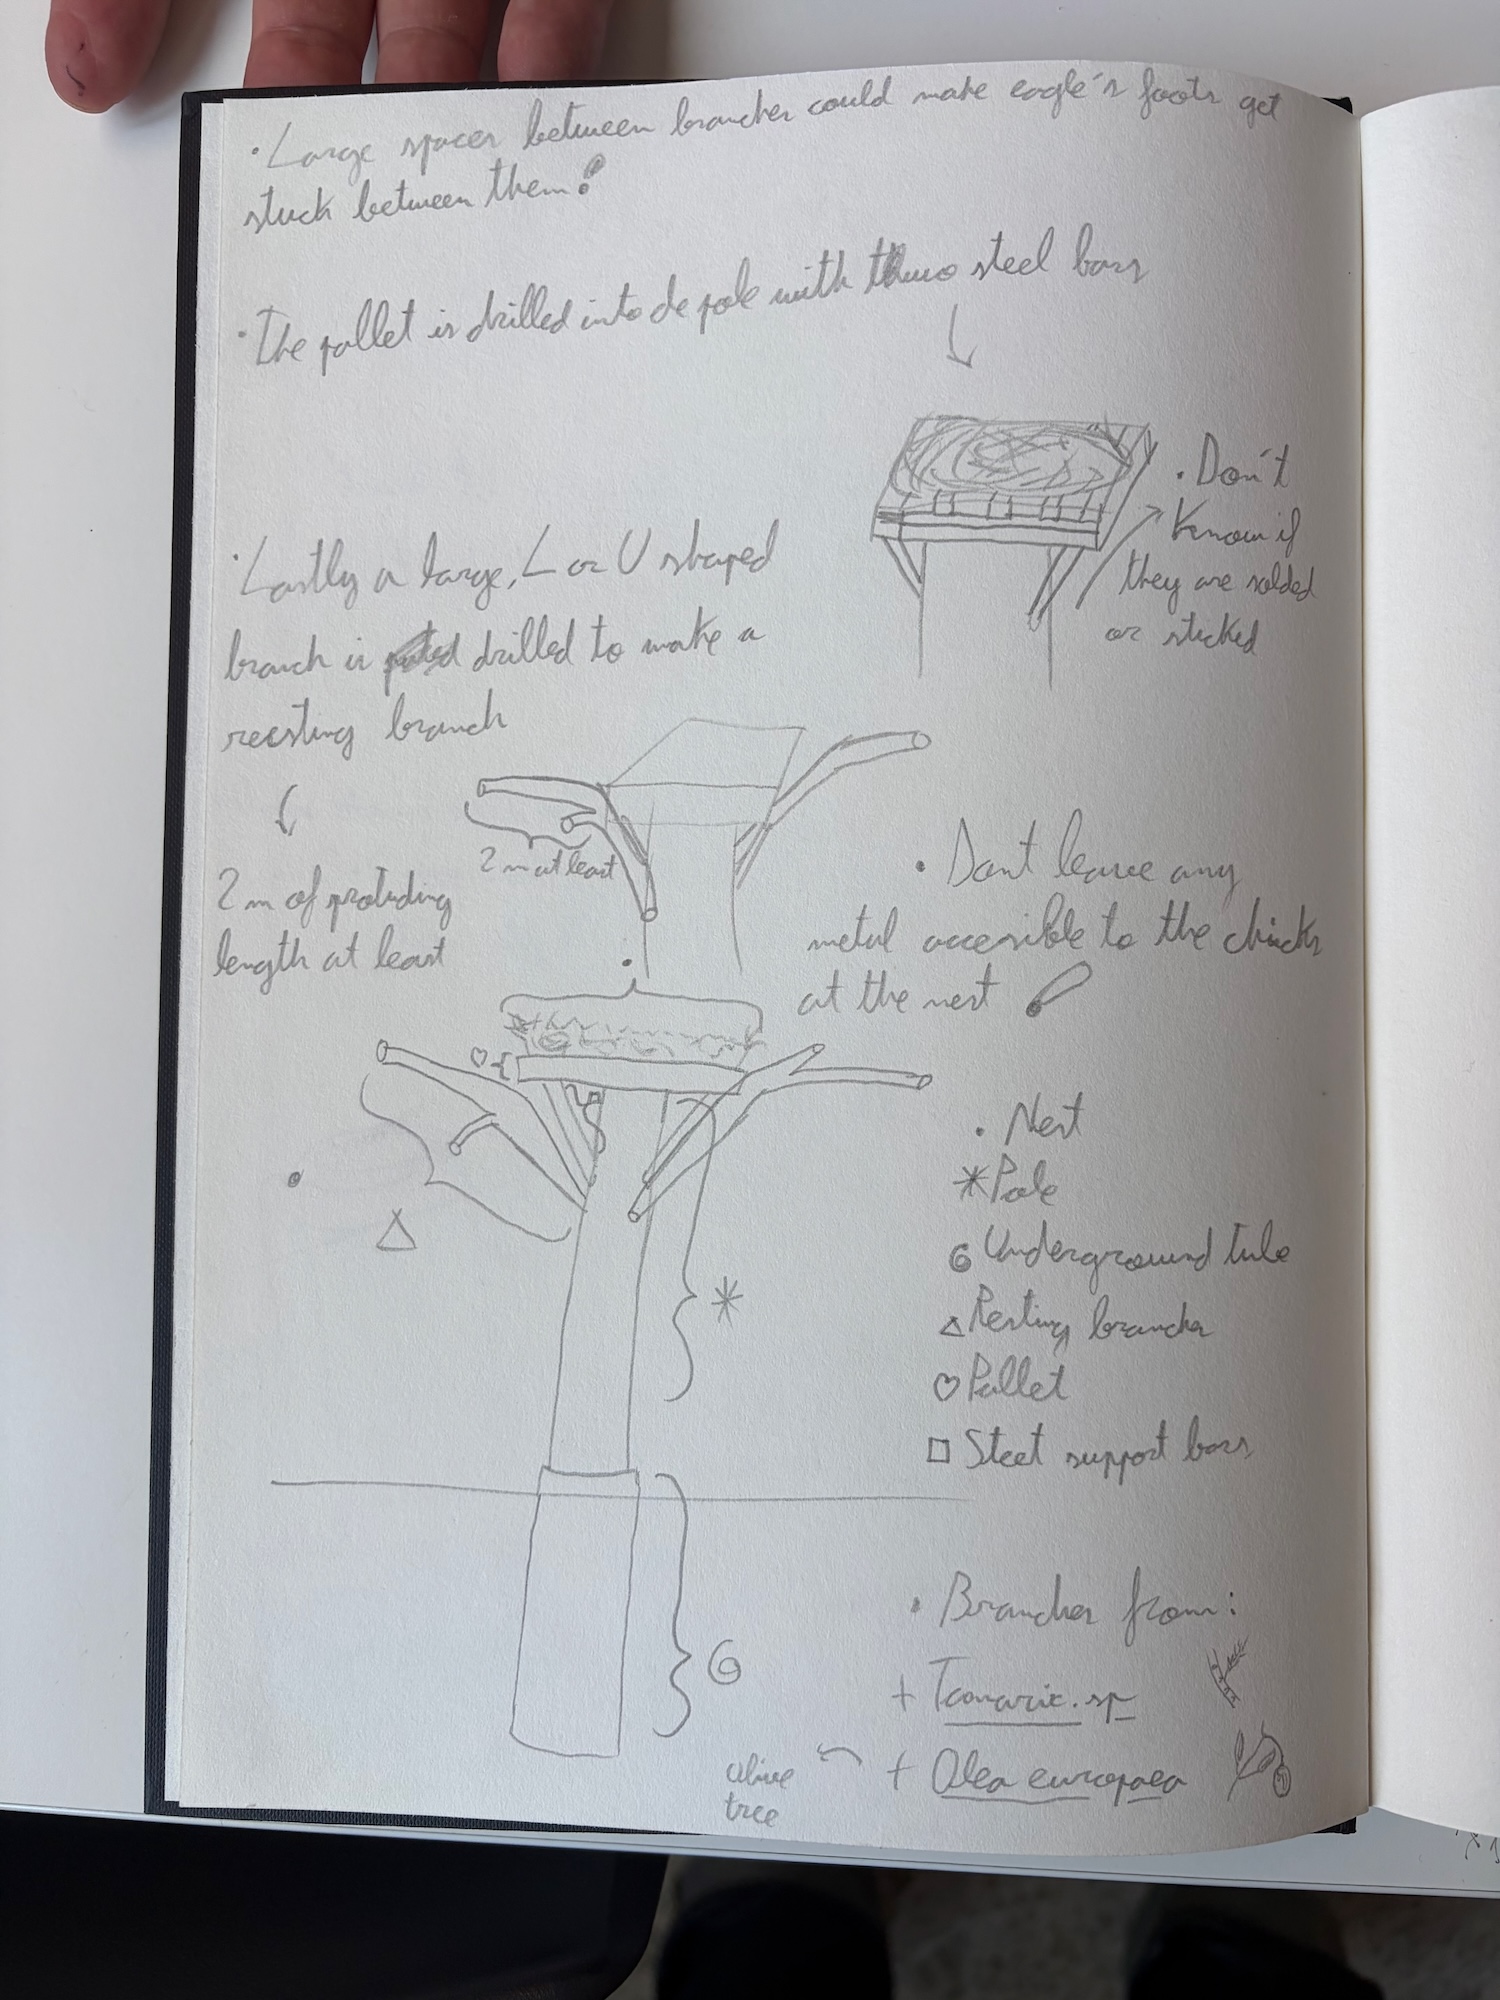 · Large spaces between branches could make eagle's foots get
stuck between them!
· The pallet is drilled into de pole with two steel bars
· Don't
Know if
they are solded
or sticked
· Lastly a large, L or U shaped
branch is drilled to make a
reesting branch
2 m of protuding
length at least
2 m at least
· Dont leave any
metal accesible to the chicks
at the nest !
· Nest
* Pole
Underground tube
△ Resting branches
♡ Pallet
□ Steel support bars
· Branches from:
+ Tamarix. sp
+ Olea europaea
olive
tree